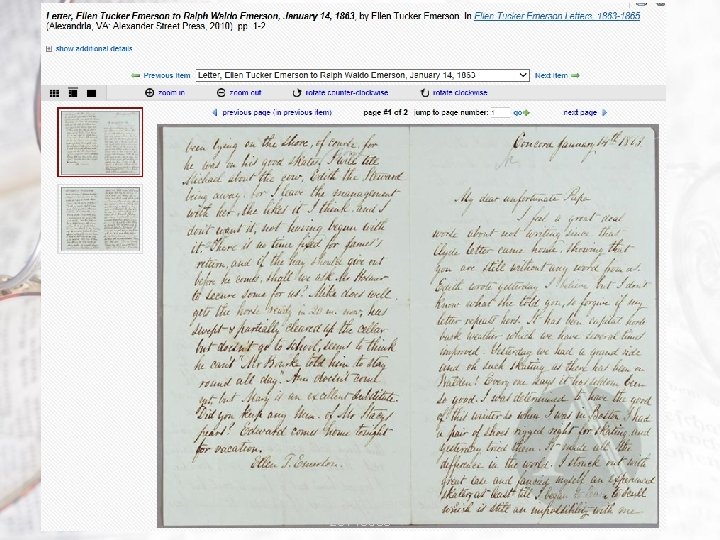 Letter, Ellen Tucker Emerson to Ralph Waldo Emerson, January 14, 1863, by Ellen Tucker Emerson. In Ellen Tucker Emerson Letters, 1863-1865
(Alexandria, VA: Alexander Street Press, 2010). pp. 1-2
show additional details
Previous Item Letter, Ellen Tucker Emerson to Ralph Waldo Emerson, January 14, 1863 Next Item
zoom in zoom out rotate counter-clockwise rotate clockwise
previous page (in previous item) page #1 of 2 jump to page number: go next page
been lying on the stove, of course, for
he was in his good skates. I will tell
Michael about the cow, Edith the Steward
being away, for I leave the management
with her, she likes it I think, and I
don't want it, not having begun with
it. There is no time fixed for James's
return, and if the hay should give out
before he comes, shall we ask Mr
to secure some for us? Mike does well,
gets the horse ready in 20 m. now, has
swept & partially cleared up the cellar
but doesn't go to school, seems to think
he can't "Mr Bourke told him to stay
round all day." Ann doesn't come
yet, but Mary is an excellent substitute.
Did you keep any Mem. of Mr
pears? Edward comes home tonight
for vacation.
Ellen T. Emerson.
Concord January 14th 1863.
My dear unfortunate Papa
I feel a great deal
worse about not writing since that
Clyde letter came home, showing that
you are still without any word from us.
Edith wrote yesterday I believe but I don't
know what she told you, so forgive if my
letter repeats hers. It has been capital
weather which we have several times
improved. Yesterday we had a grand ride
and oh such skating as there has been on
Walden! Every one says it has seldom been
so good. I was determined to have the good
of this winter so when I was in Boston I had
a pair of shoes rigged right for skating and
yesterday tried them. It made all the
difference in the world. I struck out with
great ease and fancied myself an experienced
skater, at least till I began to
which is still an impossibility with me